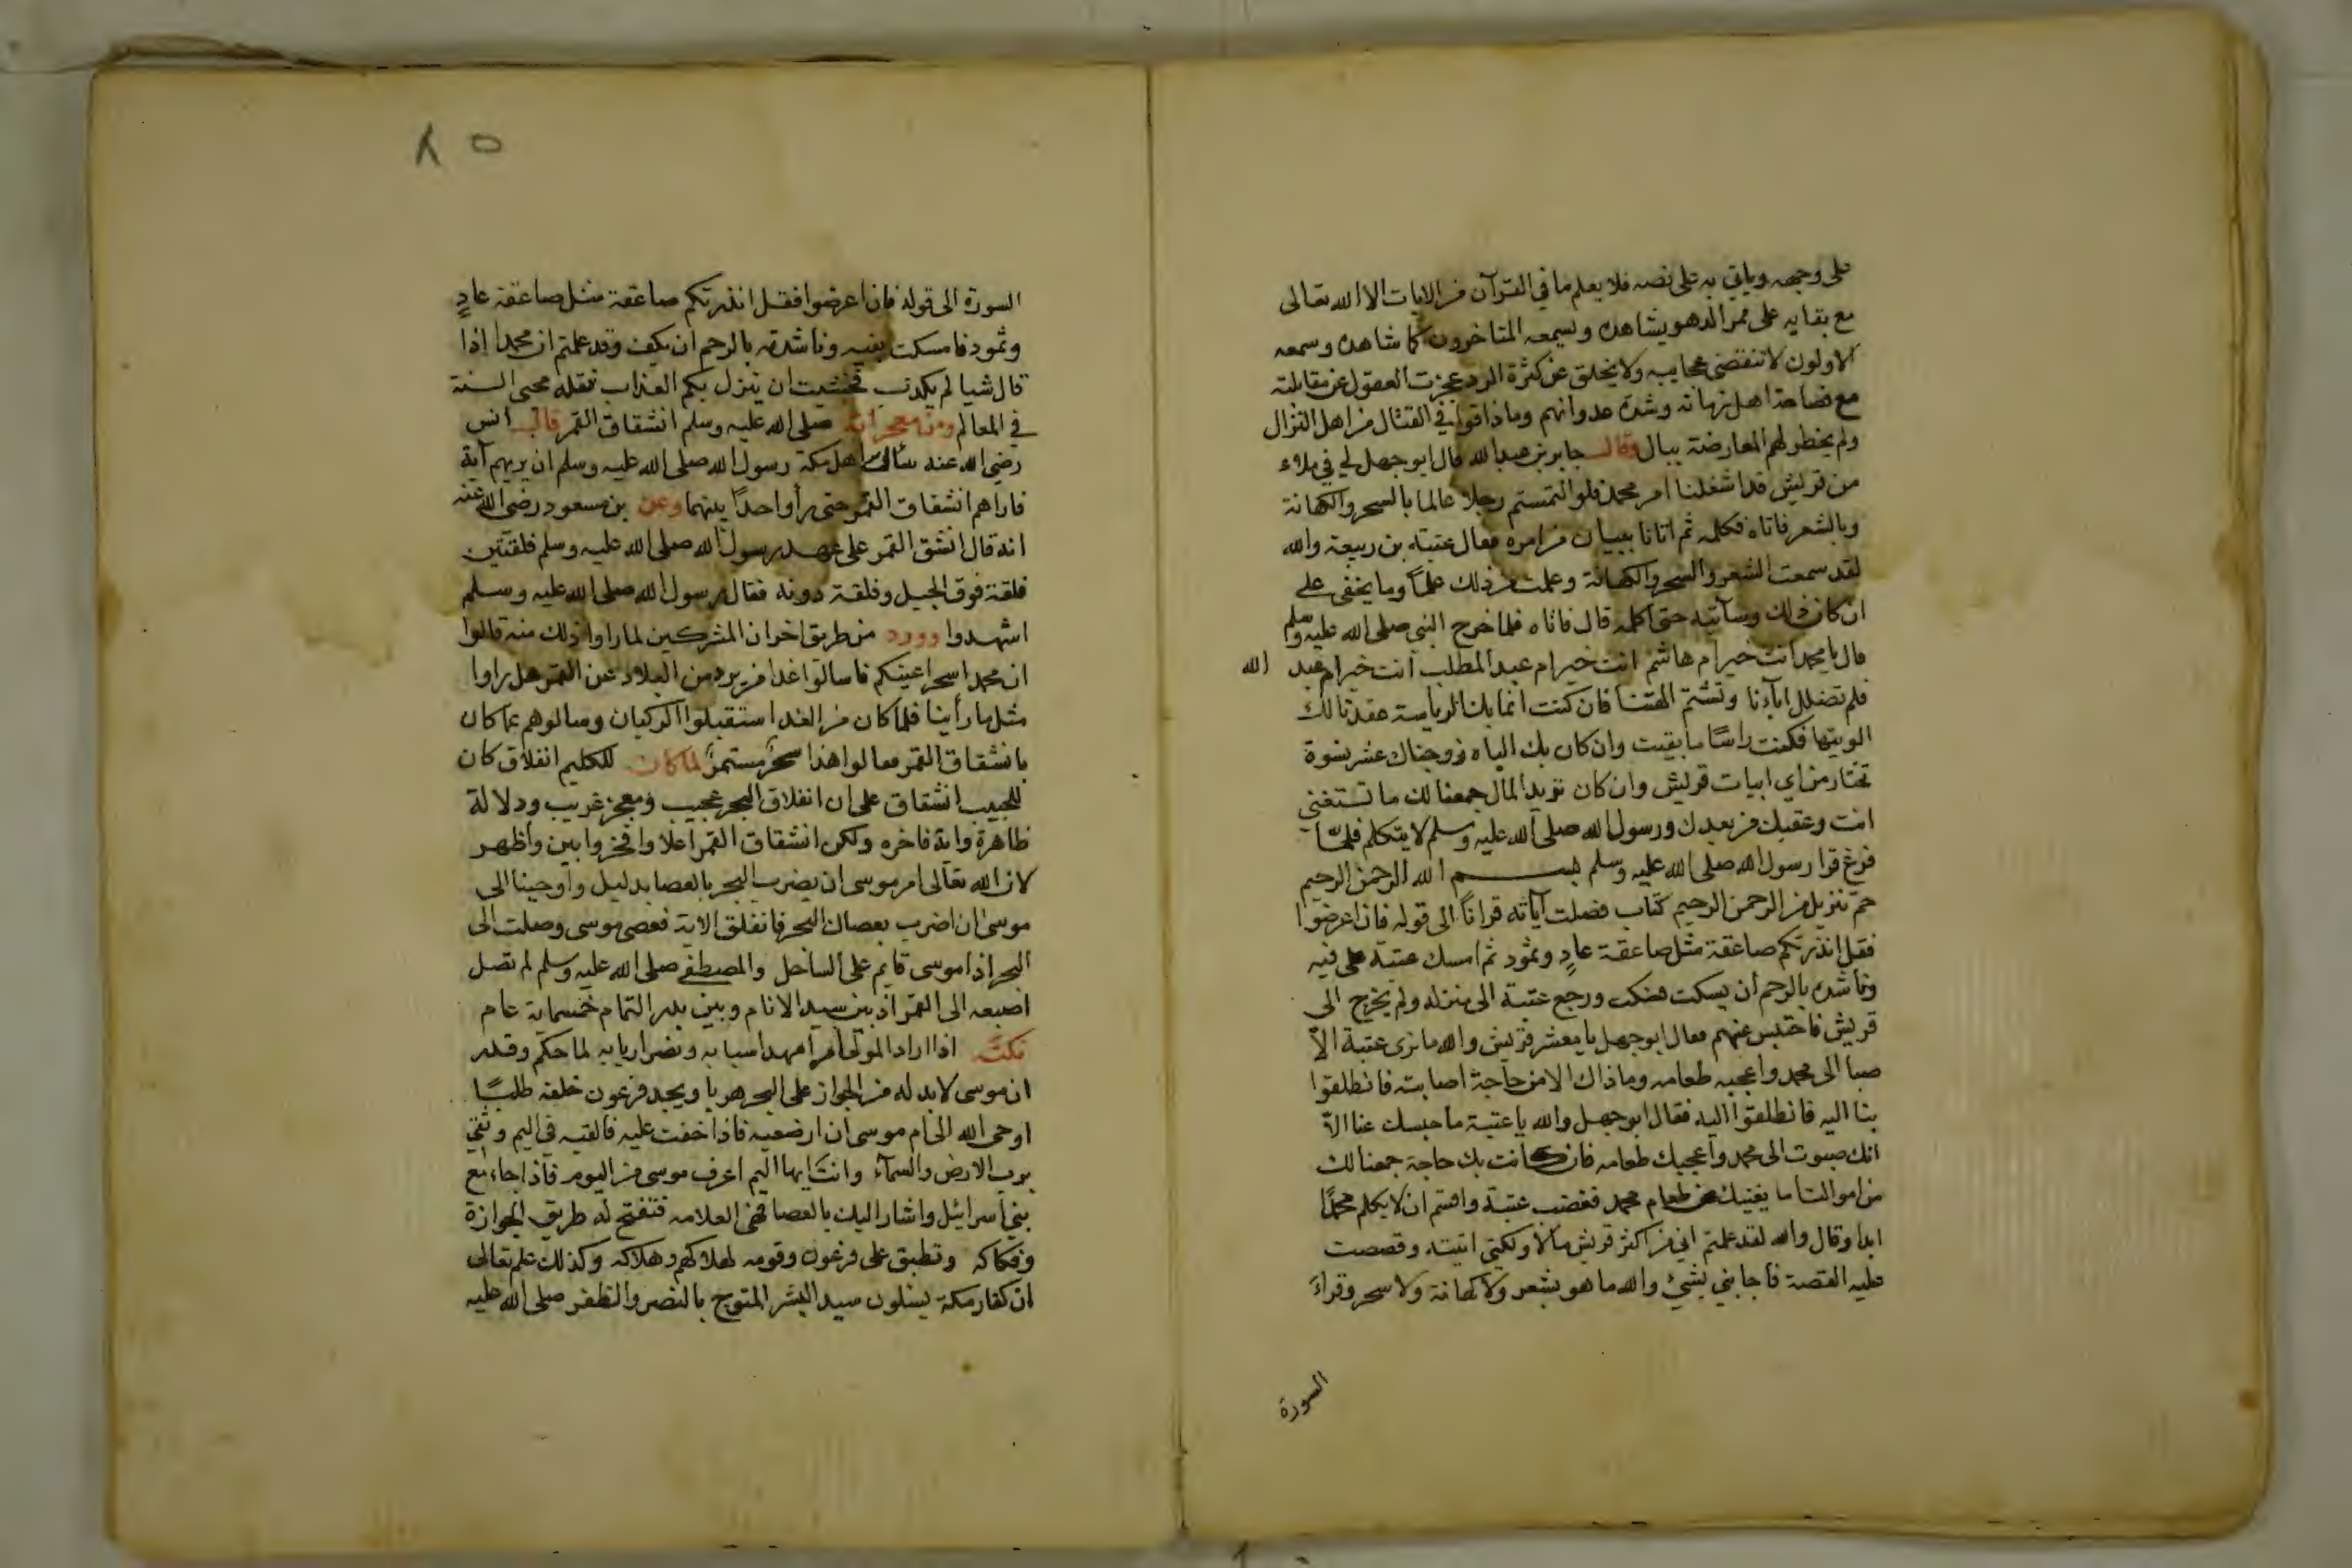 على وجهه وياتي به على نصه فلا يعلم ما في القرآن من الايات الا الله تعالى
مع بقايه على ممر الدهو يشاهده ويسمعه المتاخرون كما شاهده وسمعه
الاولون لا تنقضي عجايبه ولا يخلق عن كثرة الرد عجزت العقول عن مقابلته
مع فصاحة اهل زمانه وشدة عدوانهم وماذاقوا في القتال من اهل النزال
ولم يخطر لهم المعارضة ببال وقال جابر بن عبد الله قال ابو جهل لي في ملاء
من قريش قد اشغلنا امر محمد فلو التمستم رجلا عالما بالسحر والكهانة
وبالشعر فاتاه فكلمه ثم اتانا ببيان من امره فقال عتبة بن ربيعة والله
لقد سمعت الشعر والسحر والكهانة وعلمت من ذلك علماً وما يخفى على
ان كان ذلك وسآتيه حتى اكلمه قال فاتاه فلما خرج النبي صلى الله عليه وسلم
قال يا محمد انت خير ام هاشم انت خير ام عبد المطلب انت خير ام عبد الله
فلم تضلل اباءنا وتشتم الهتنا فان كنت انما بك الرياسة عقدنا لك
الويتها فكنت راسًا ما بقيت وان كان بك الباه زوجناك عشر نسوة
تختار من اي ابيات قريش وان كان تريد المال جمعنا لك ما تستغني
انت وعقبك من بعدك ورسول الله صلى الله عليه وسلم لا يتكلم فلمّا
فرغ قرا رسول الله صلى الله عليه وسلم بسم الله الرحمن الرحيم
حم تنزيل من الرحمن الرحيم كتاب فصلت آياته قراناً الى قوله فان اعرضوا
فقل انذرتكم صاعقة مثل صاعقة عادٍ وثمود ثم امسك عتبة على فيه
وناشده بالرحم أن يسكت ورجع عتبة الى منزله ولم يخرج الى
قريش فاحتبس عنهم فقال ابو جهل يا معشر قريش والله ما نرى عتبة الاّ
صبا الى محمد واعجبه طعامه وما ذاك الا من حاجة اصابته فانطلقوا
بنا اليه فانطلقوا اليه فقال ابو جهل والله يا عتبة ما حبسك عنا الاّ
انك صبوت الى محمد واعجبك طعامه فان كانت بك حاجة جمعنا لك
من اموالنا ما يغنيك عن طعام محمد فغضب عتبة واقسم ان لا يكلم محمدًا
ابدا وقال والله لقد علمتم اني من اكثر قريش مالاً ولكني اتيته وقصصت
عليه القصة فاجابني بشيٍ والله ما هو بشعر ولا كهانة ولا سحر وقرأ
السورة
٨٥
السورة الى قوله فان اعرضوا فقل انذرتكم صاعقة مثل صاعقة عادٍ
وثمود فامسكت بفيه وناشدته بالرحم ان يكف وقد علمتم ان محمدا إذا
قال شيا لم يكذب فخشيت ان ينزل بكم العذاب نقله محيى السنة
في المعالم ومن معجزاته صلى الله عليه وسلم انشقاق القمر قال انس
رضي الله عنه سأل اهل مكة رسول الله صلى الله عليه وسلم ان يريهم آية
فاراهم انشقاق القمر حتى رأوا حداً بينهما وعن بن مسعود رضي الله عنه
انه قال انشق القمر على عهد رسول الله صلى الله عليه وسلم فلقتين
فلقة فوق الجبل وفلقة دونه فقال رسول الله صلى الله عليه وسلم
اشهدوا وورد من طريق اخر ان المشركين لما راوا ذلك منه قالوا
ان محمدا سحر اعينكم فاسالوا غدا من يرد من البلاد عن القمر هل راوا
مثل ما رأينا فلما كان من الغد استقبلوا الركبان وسالوهم عما كان
بانشقاق القمر فقالوا هذا سحرٌ مستمرٌ لما كان للكليم انفلاق كان
للحبيب انشقاق على ان انفلاق البحر عجيب ومعجز غريب ودلالة
ظاهرة واية فاخره ولكن انشقاق القمر اعلا وافخر وابين واظهر
لان الله تعالى امر موسى ان يضرب البحر بالعصا بدليل وأوحينا الى
موسى ان اضرب بعصاك البحر فانفلق الاية فعصى موسى وصلت الى
البحر اذ موسى قايم على الساحل والمصطفى صلى الله عليه وسلم لم تصل
اصبعه الى القمر اذ بين سيد الانام وبين بدر التمام خمسماية عام
نكتة اذا اراد المولى امرا مهد اسبابه ونصرا ربابه لما حكم وقدر
ان موسى لا بد له من الجواز على البحر هربا ويجد فرعون خلفه طلبًا
اوحى الله الى ام موسى أن ارضعيه فاذا خفت عليه فالقيه في اليم وثقي
برب الارض والسماء وانت ايها اليم اعرف موسى من اليوم فاذا جاء مع
بني اسرائيل واشار اليك بالعصا فهي العلامه فتفتح له طريق الجوازة
وفكاكه وتطبق على فرعون وقومه لهلاكهم وهلاكه وكذلك علم تعالى
ان كفار مكة يسئلون سيد البشر المتوج بالنصر والظفر صلى الله عليه